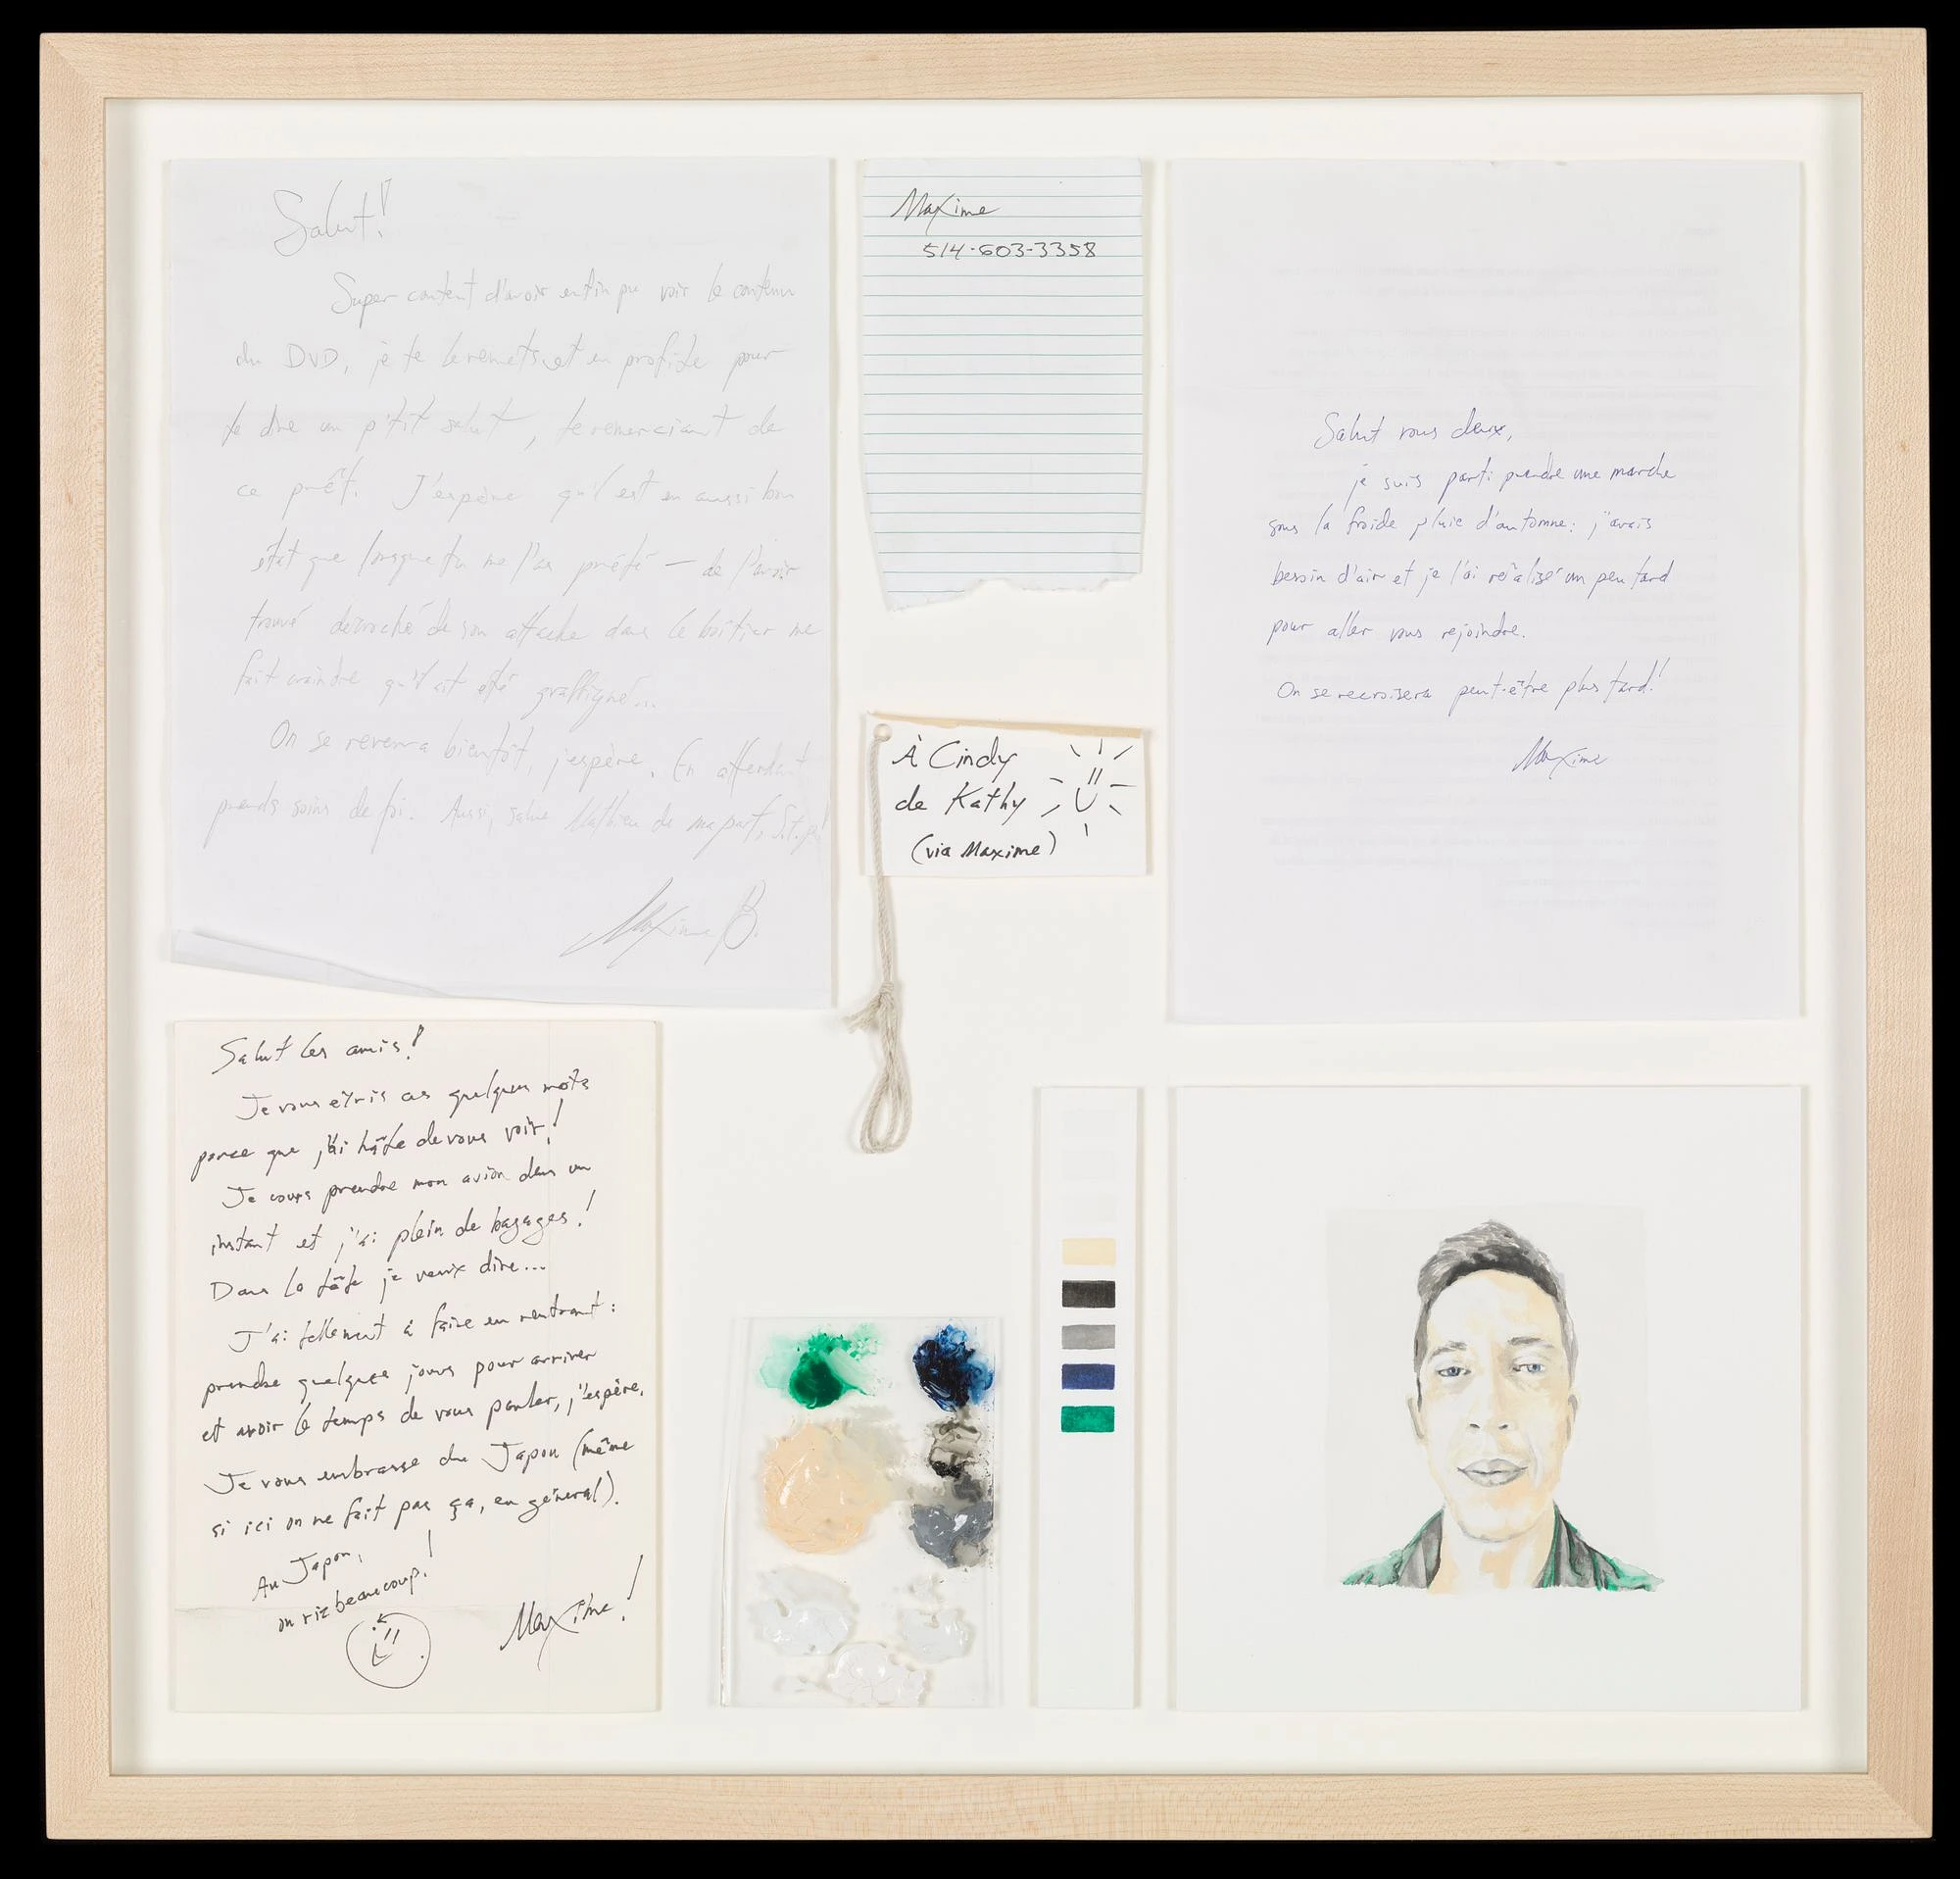 Salut!
Super content d'avoir enfin pu voir le contenu
du DVD, je te le remets et en profite pour
te dire un p'tit salut, te remerciant de
ce prêt. J'espère qu'il est en aussi bon
état que lorsque tu me l'as prêté — de l'avoir
trouvé décroché de son attache dans le boîtier me
fait craindre qu'il ait été graffigné...
On se reverra bientôt, j'espère. En attendant
prends soins de toi. Aussi, salue Mathieu de ma part, S.t.p.!
Maxime B.
Maxime
514-603-3358
Salut vous deux,
je suis parti prendre une marche
sous la froide pluie d'automne: j'avais
besoin d'air et je l'ai réalisé un peu tard
pour aller vous rejoindre.
On se recroisera peut-être plus tard!
Maxime
À Cindy
de Kathy
(via Maxime)
Salut les amis!
Je vous écris ces quelques mots
parce que j'ai hâte de vous voir!
Je cours prendre mon avion dans un
instant et j'ai plein de bagages!
Dans la tête je veux dire...
J'ai tellement à faire en rentrant:
prendre quelques jours pour arriver
et avoir le temps de vous parler, j'espère.
Je vous embrasse du Japon (même
si ici on ne fait pas ça, en général).
Au Japon,
on rit beaucoup!
Maxime!